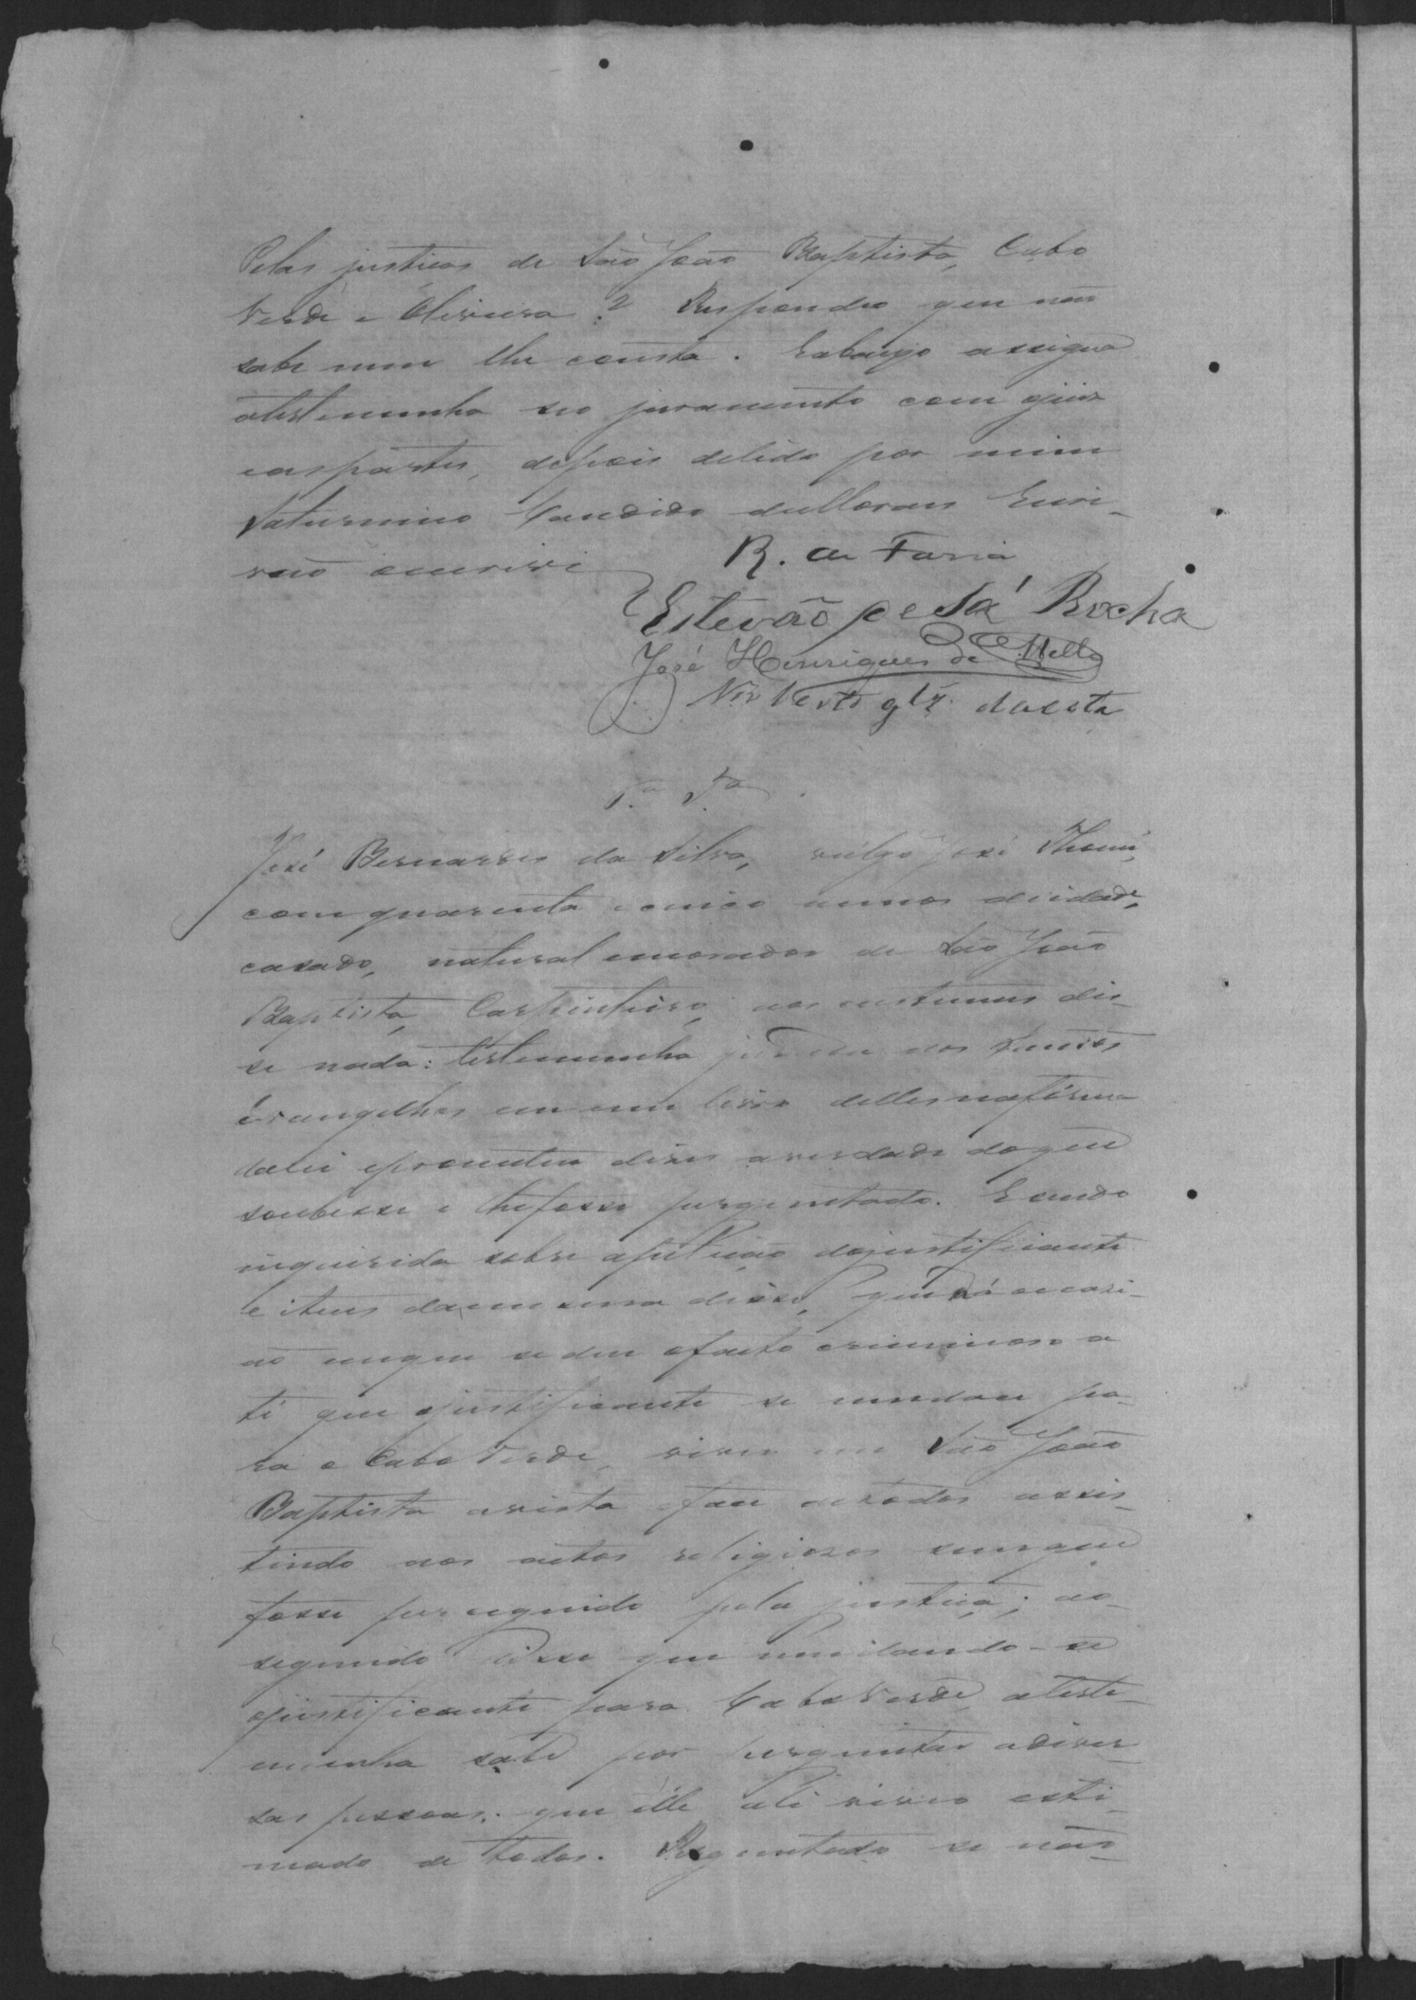 Pelas justiças de São João Baptista, Cabo
Verde e Oliveira? Respondeo que não
sabe nem lhe consta. Eabaixo assigna
atestemunha seo juramento com o juis
easpartes, depois delido por mim
Saturnino Candido de Moraes Escri-
vão escrivi
R. de Faria
Estevão pe Sá Rocha
José Henriques de Mello
Norberto da Costa
1.ª T.ª
José Bernardes da Silva, vulgo José Thomé,
com quarenta e cinco annos deidade,
casado, natural emorador de São João
Baptista, Carpinteiro, aos custumes dis-
se nada: testemunha jurada aos Santos
Evangelhos em um livro delles naforma
dalei eprometeu diser averdade doque
soubesse e lhefosse perguntado. E sendo
inquirida sobre apetição dojustificante
e itens damesma disse, que da ocasi-
ão emque sedeu ofacto criminoso a
té que ojustificante se mudou pa-
ra o Cabo Verde, viveu em São João
Baptista avista e face detodos assis-
tindo aos actos religiosos semque
fosse perseguido pela justiça; ao
segundo disse que mudando-se
ojustificante para Cabo Verde ateste-
munha sabe por perguntar adiver-
sas pessoas, que elle ali viveo esti-
mado de todos. Perguntado se não